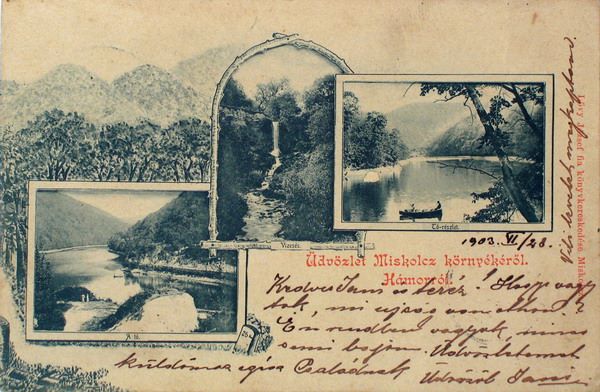 Vizesés.
Tó-részlet.
A tó.
Üdvözlet Miskolcz környékéről.
Hámorról.
Lövy József fia könyvkereskedése Misk
1903. VI/28.
Kedves Jani és Teréz! Hogy vagy
tok, mi ujság van otthon?
Én rendben vagyok, nincs
semi bajom. Üdvözletemet
küldöm az egész Családnak
Üdvözöl Jani